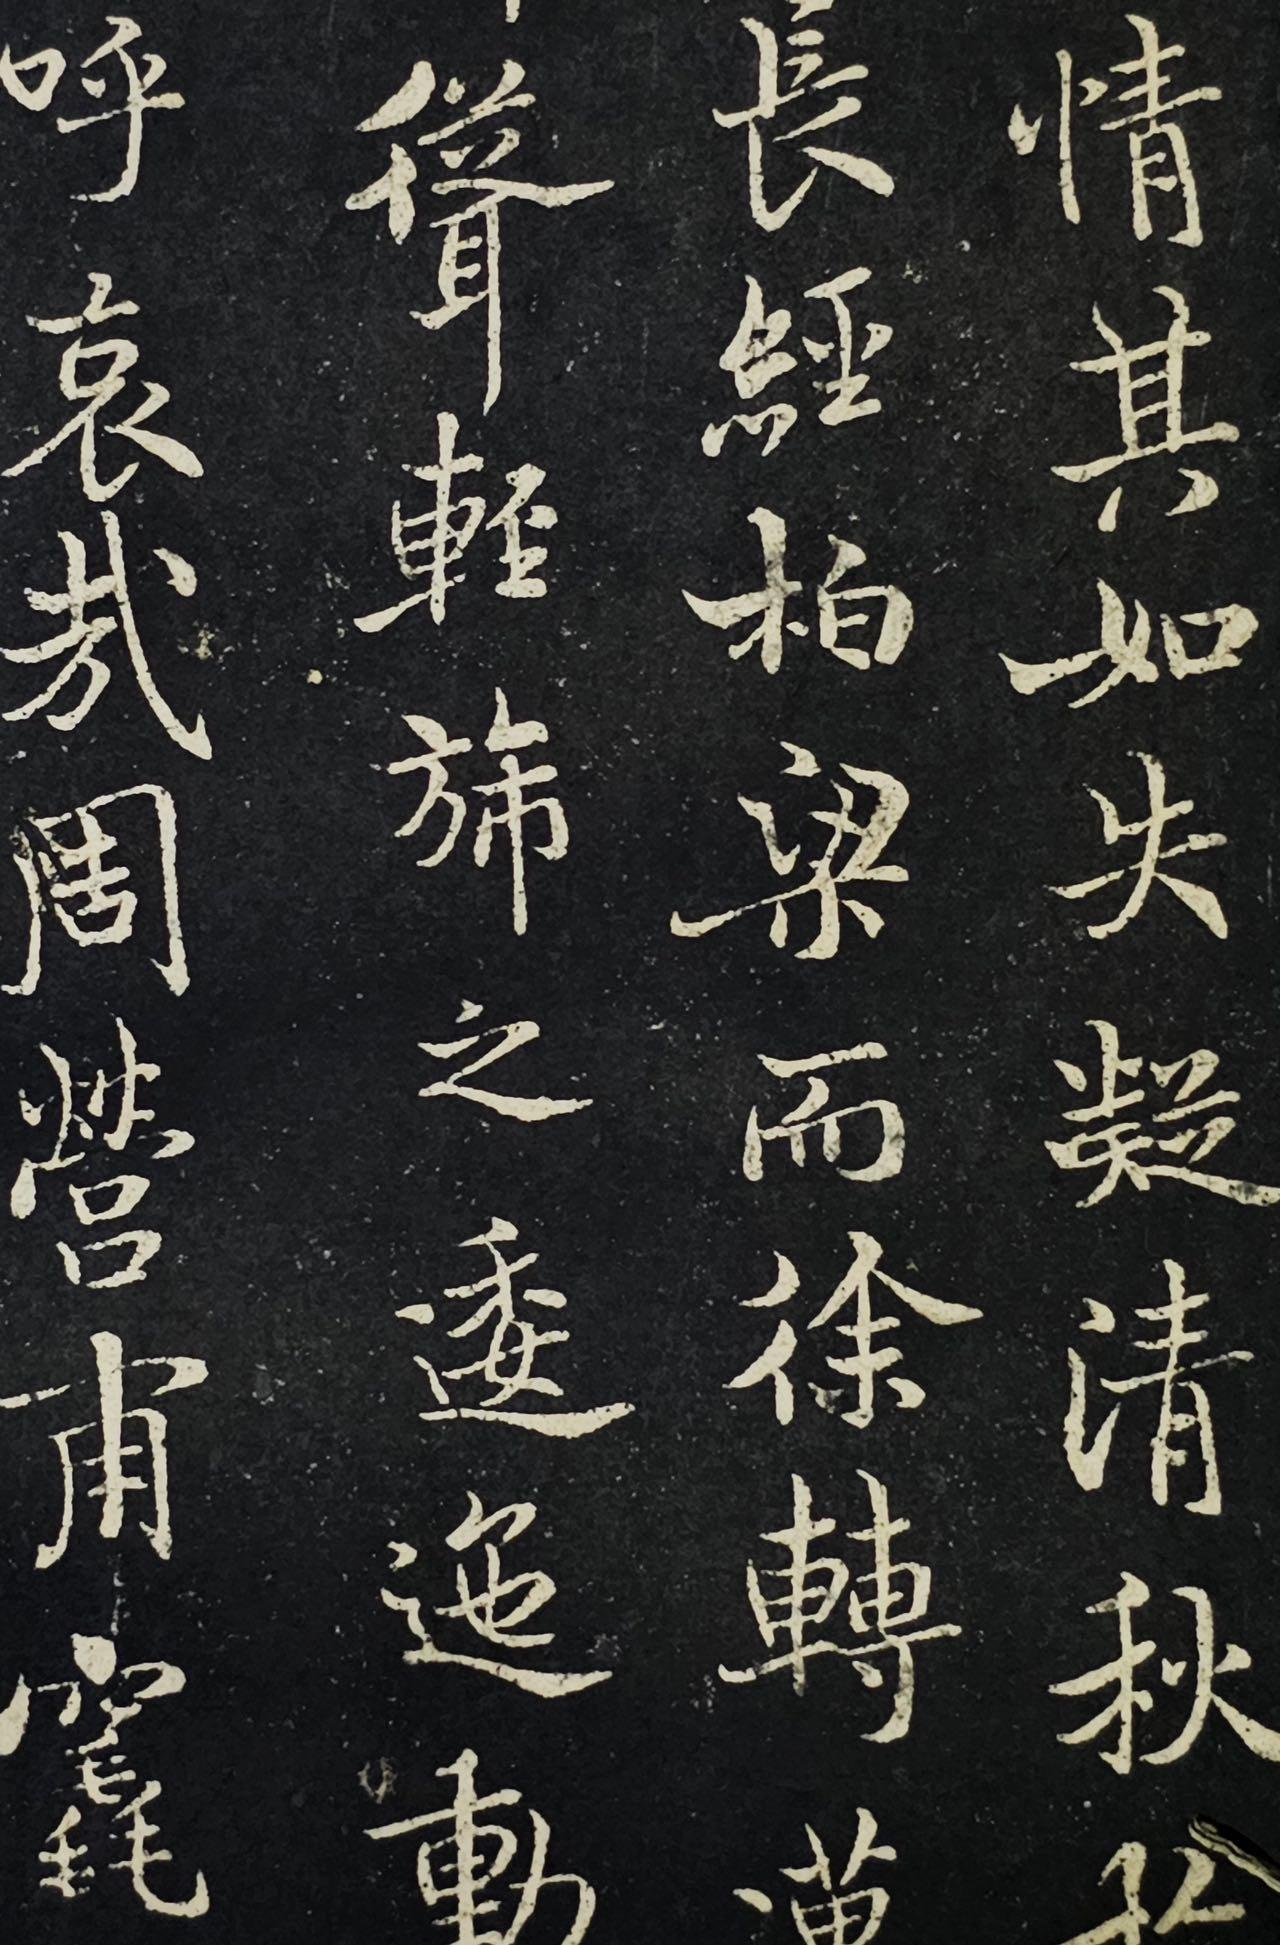 情其如失凝清秋
長經柏梁而徐轉
聳輕旆之逶迤動
呼哀哉周營甫竁